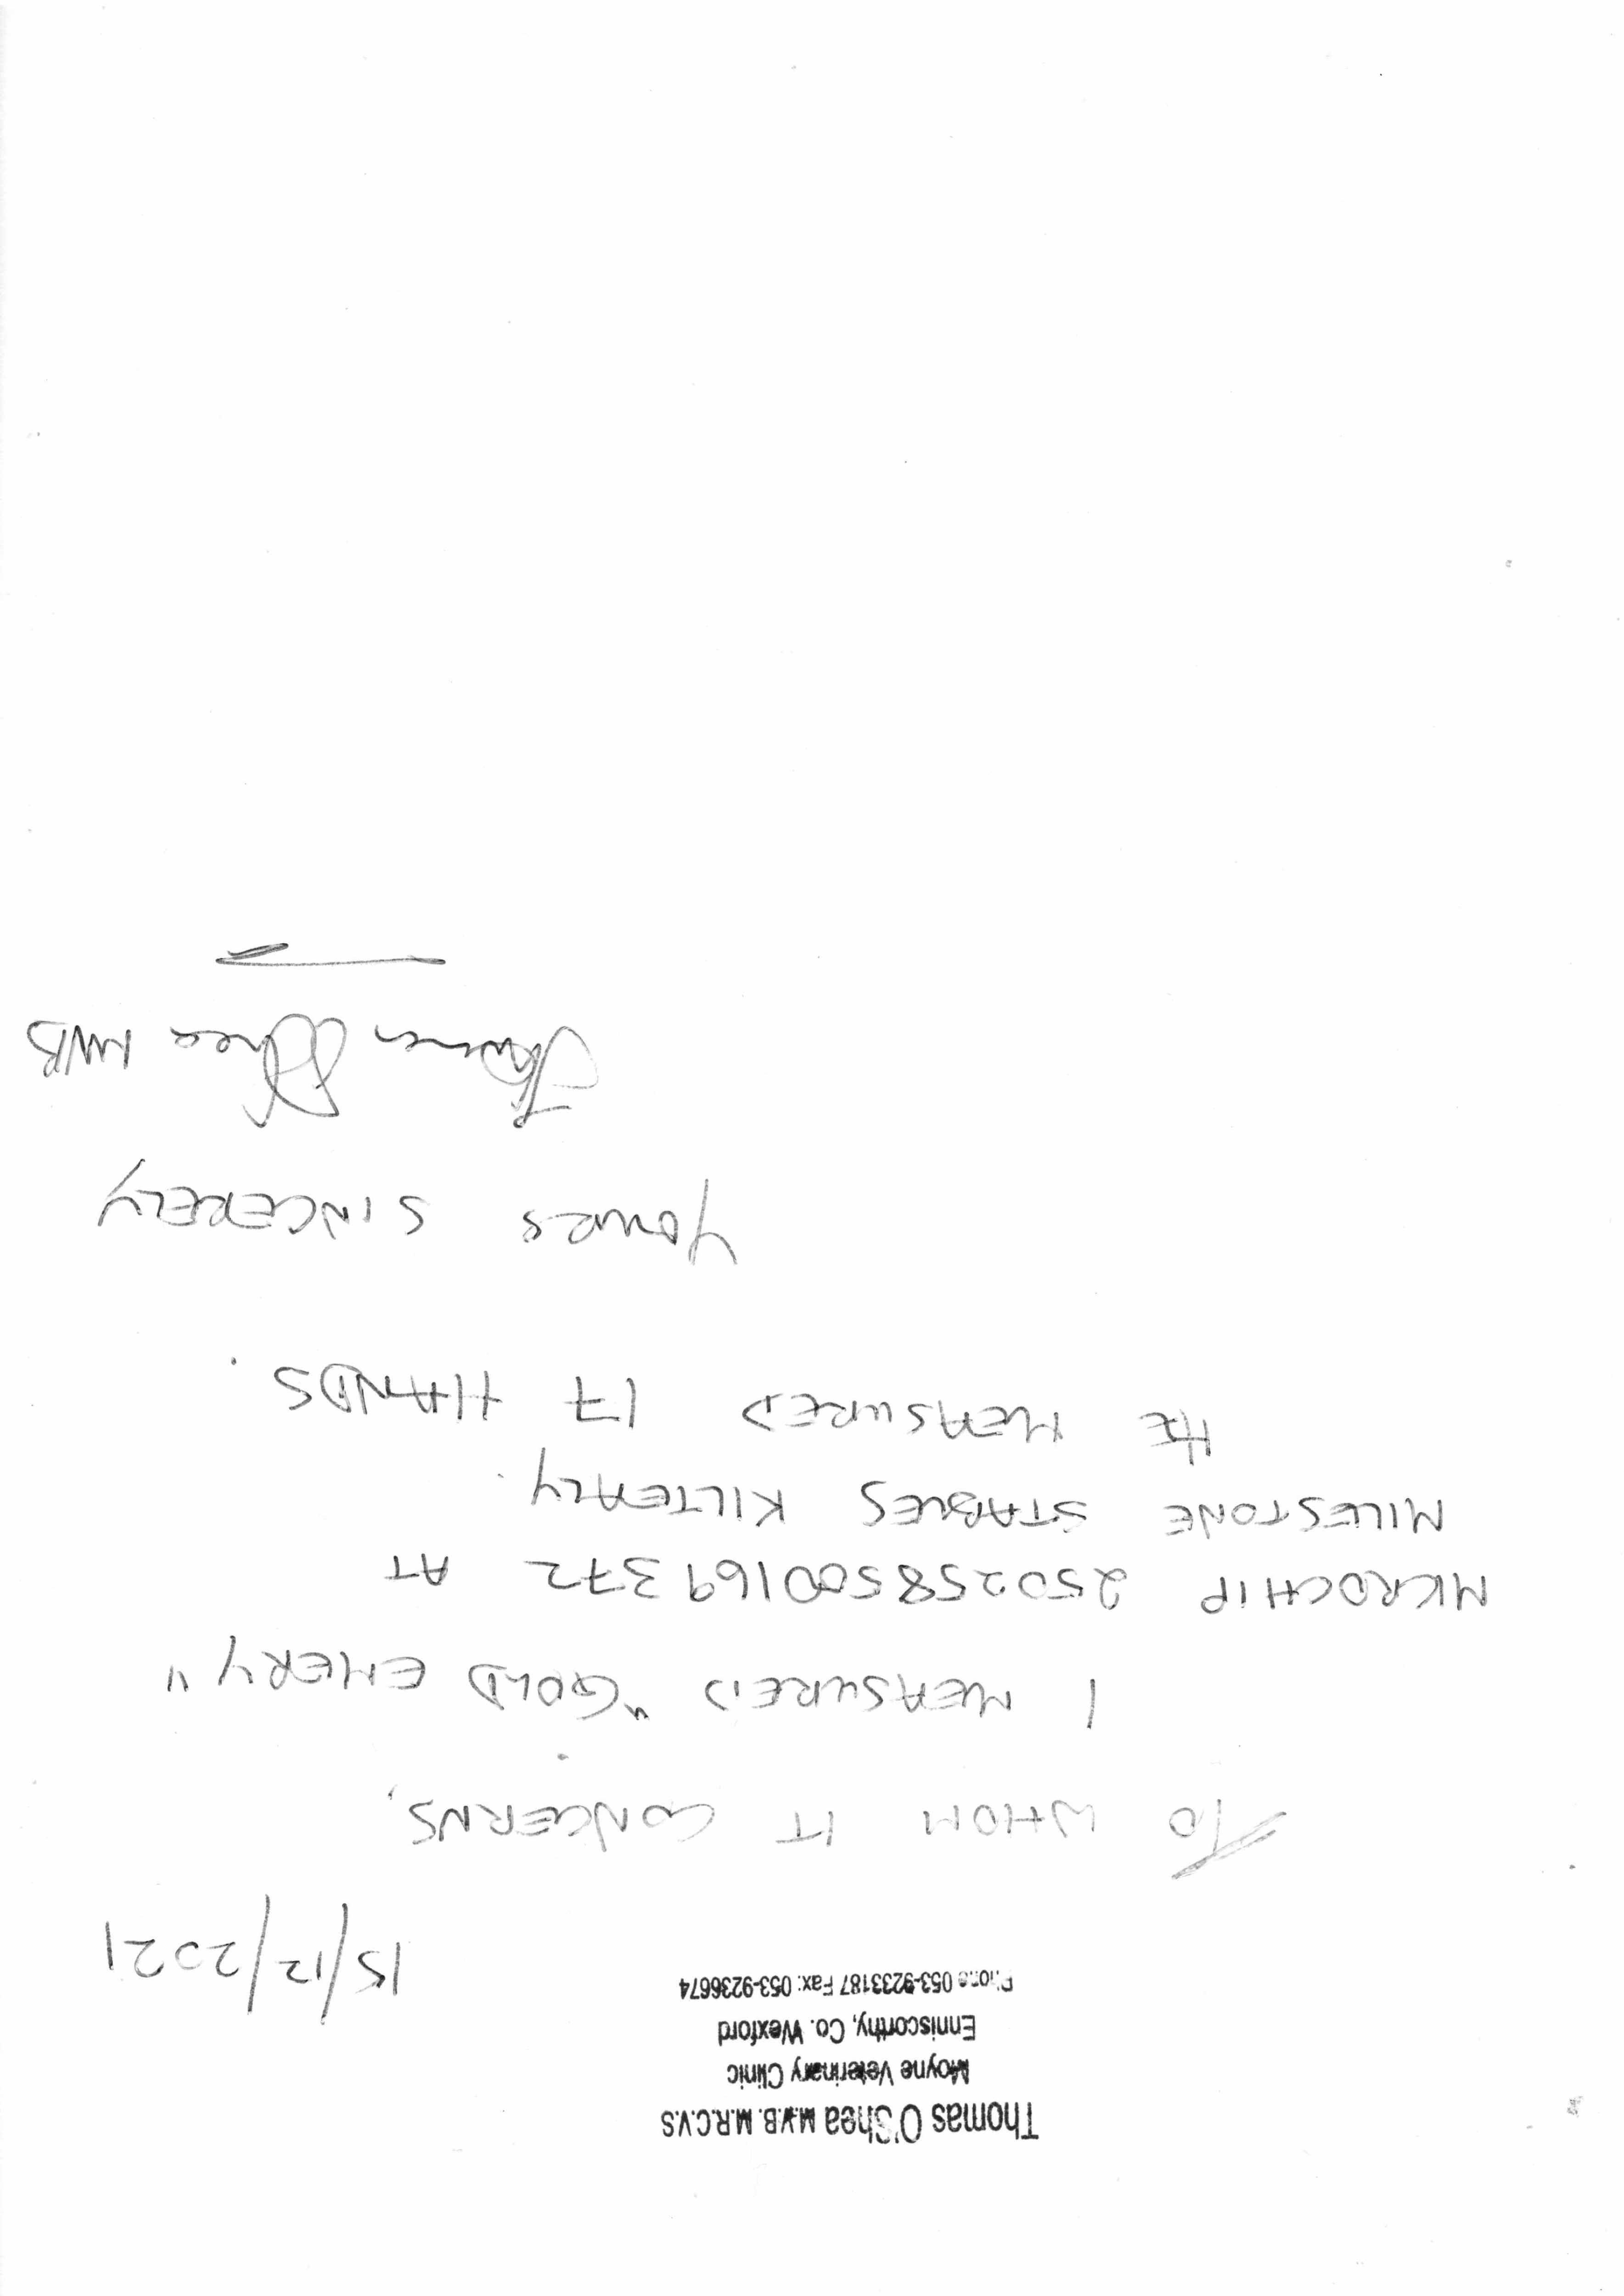 Thomas O'Shea M.V.B. M.R.C.V.S
Moyne Veterinary Clinic
Enniscorthy, Co. Wexford
Phone 053-9233187 Fax: 053-9236674
15/12/2021
TO WHOM IT CONCERNS,
I MEASURED "GOLD EMERY"
MICROCHIP 250258500169372 AT
MILESTONE STABLES KILTEALY.
HE MEASURED 17 HANDS.
YOURS SINCERELY
Thomas O'Shea MVB